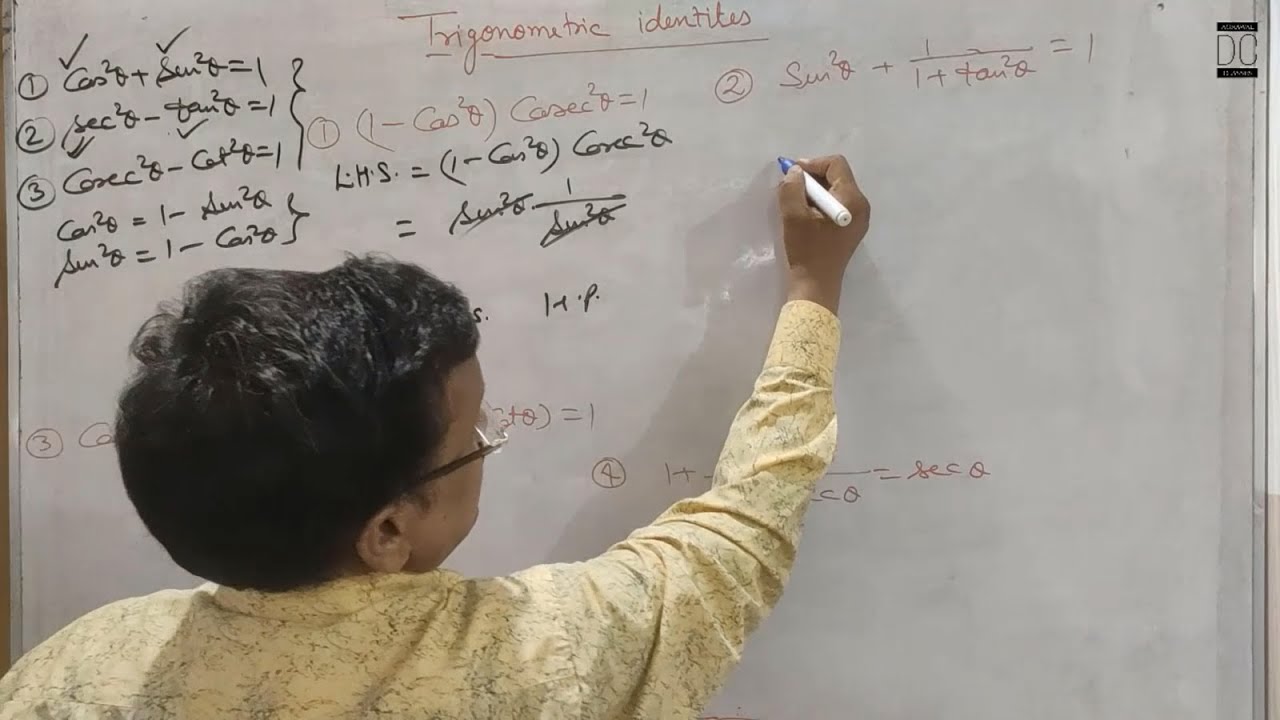 Trigonometric identites
① Cos²θ + Sin²θ = 1
② sec²θ - tan²θ = 1
③ Cosec²θ - Cot²θ = 1
Cos²θ = 1 - Sin²θ
Sin²θ = 1 - Cos²θ
① (1 - Cos²θ) Cosec²θ = 1
L.H.S. = (1 - Cos²θ) Cosec²θ
= Sin²θ · 1/Sin²θ
S. H.P.
② Sin²θ + 1/(1 + tan²θ) = 1
③ = 1
④ 1 + = secθ
AGRAWAL
DC
CLASSES